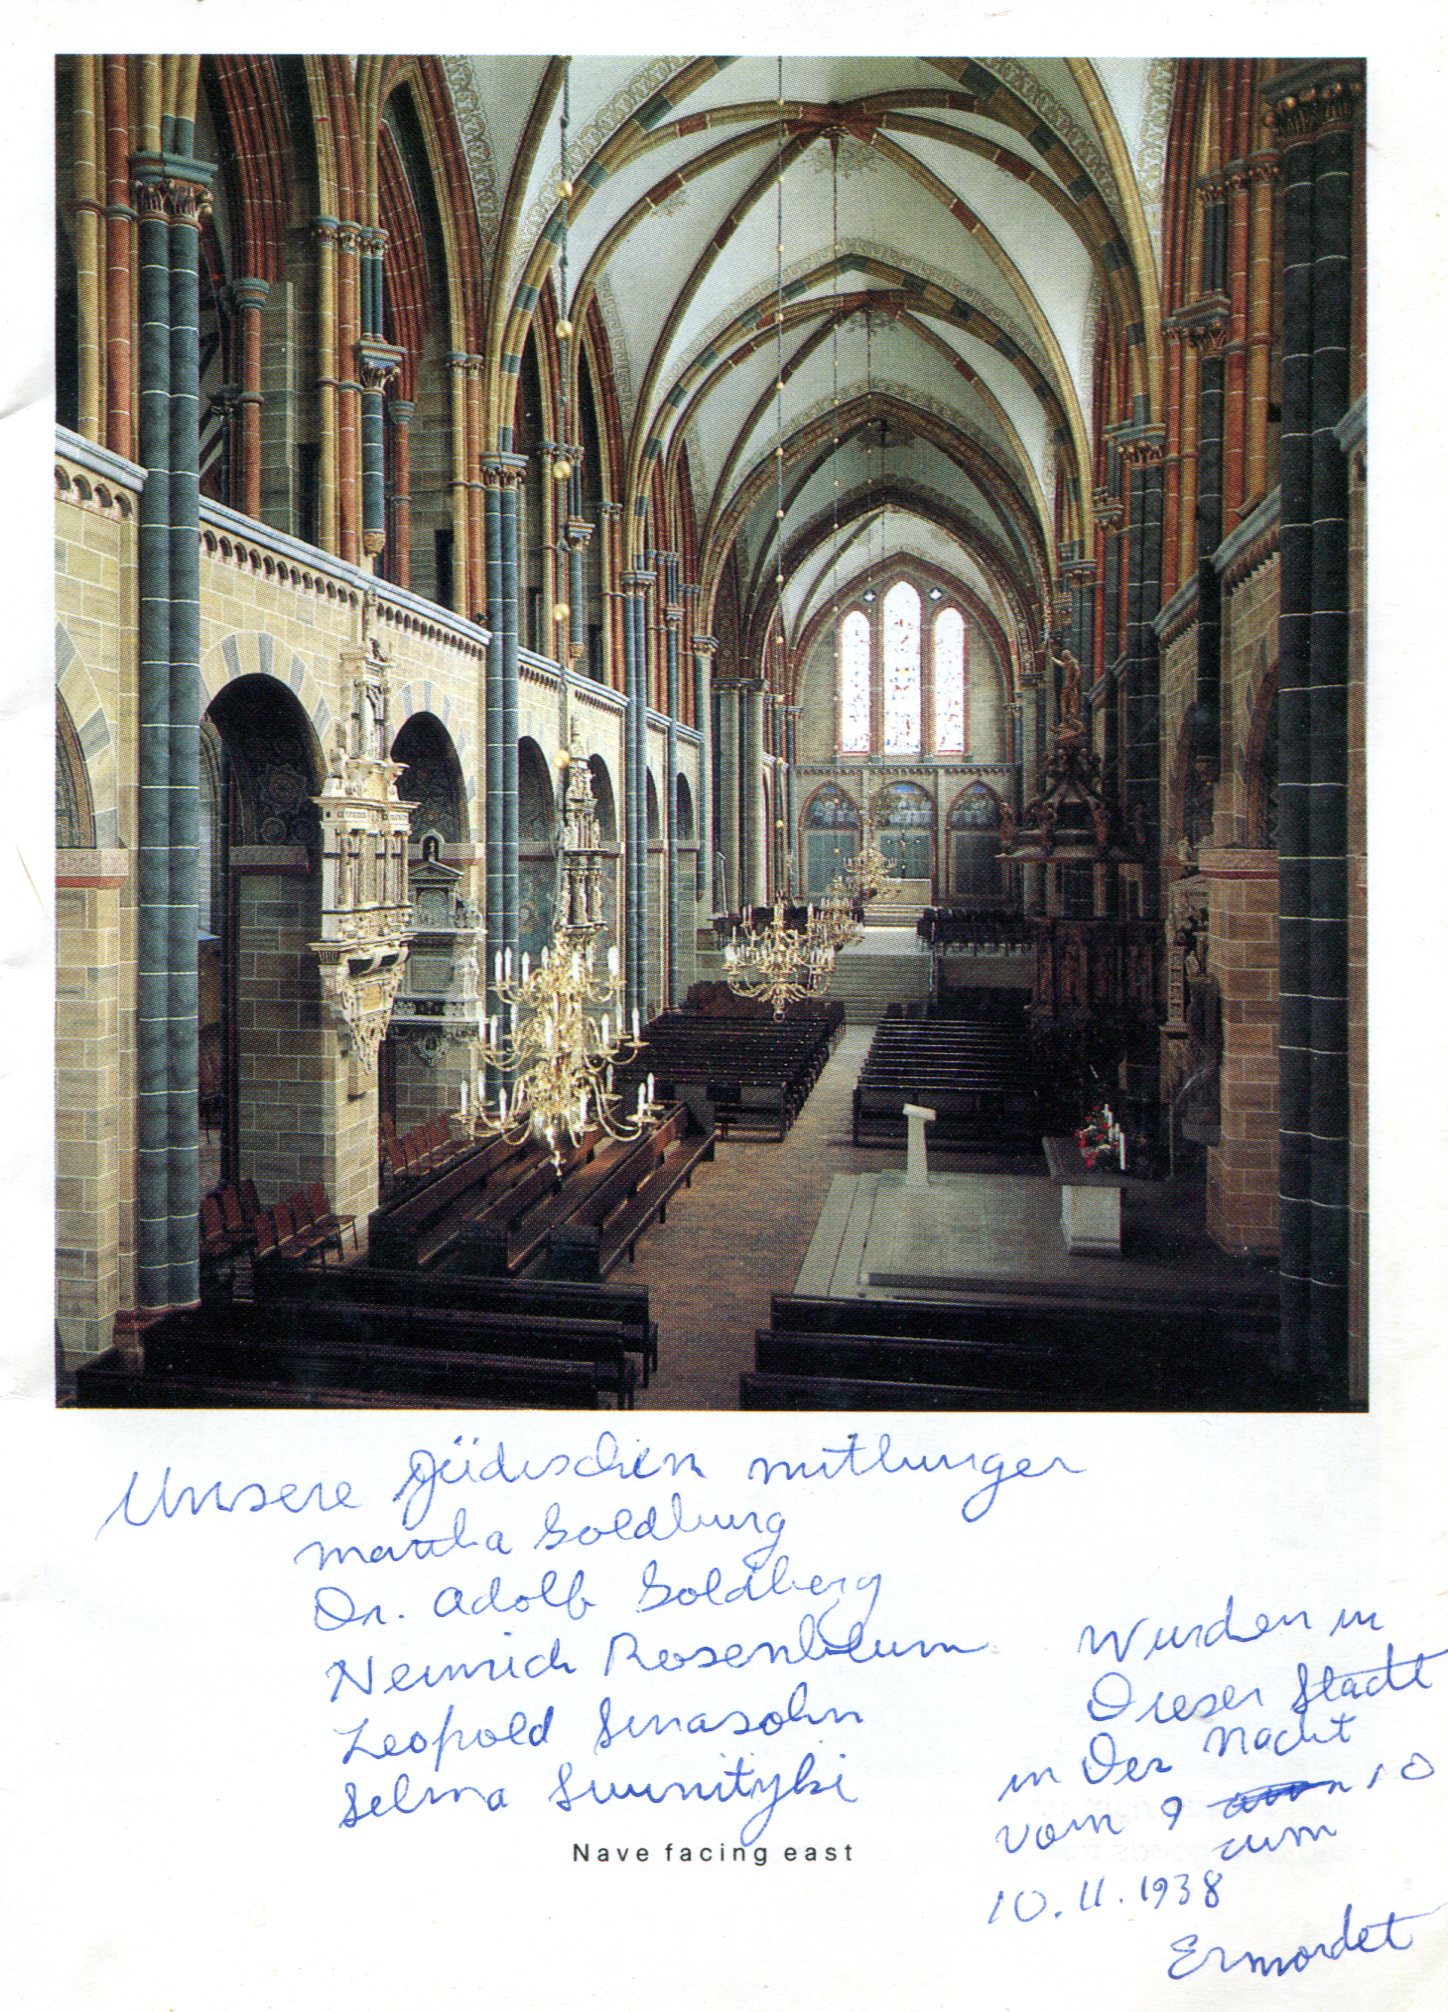 Unsere Jüdischen mitbürger
Martha Goldburg
Dr. Adolf Goldberg
Heinrich Rosenblum
Leopold Sinasohn
Selma Swinitzki
Wurden in
Dieser Stadt
in Der Nacht
vom 9 10
zum
10.11.1938
Ermordet
Nave facing east